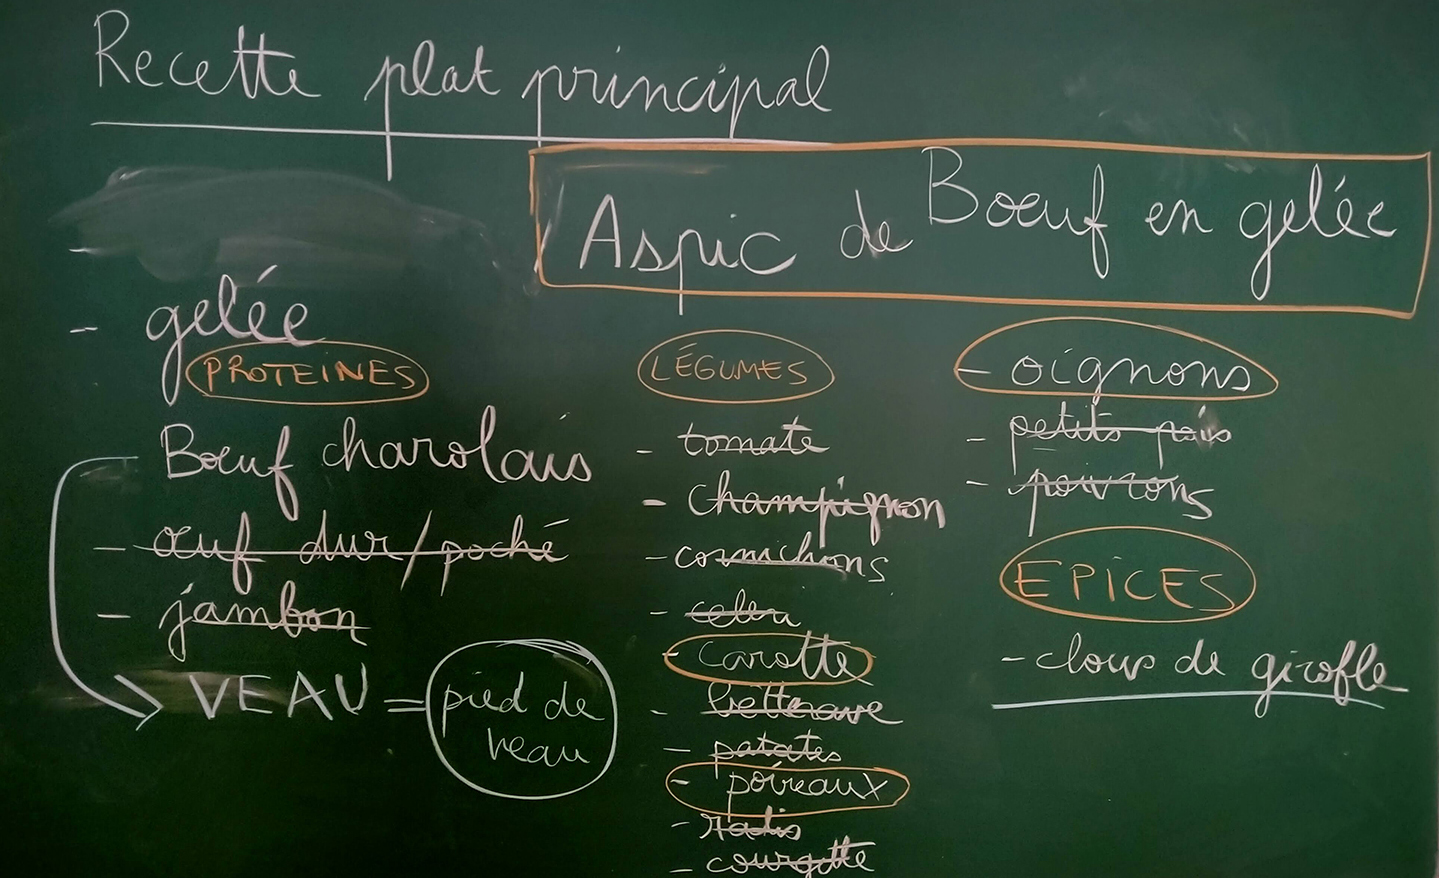 Recette plat principal
Aspic de Bœuf en gelée
-
- gelée
PROTEINES
Bœuf charolais
- œuf dur/poché
- jambon
VEAU = pied de
veau
LÉGUMES
- tomate
- champignon
- cornichons
- celeri
- carotte
- betterave
- patates
- poireaux
- radis
- courgette
- oignons
- petits pois
- poivrons
EPICES
- clous de girofle